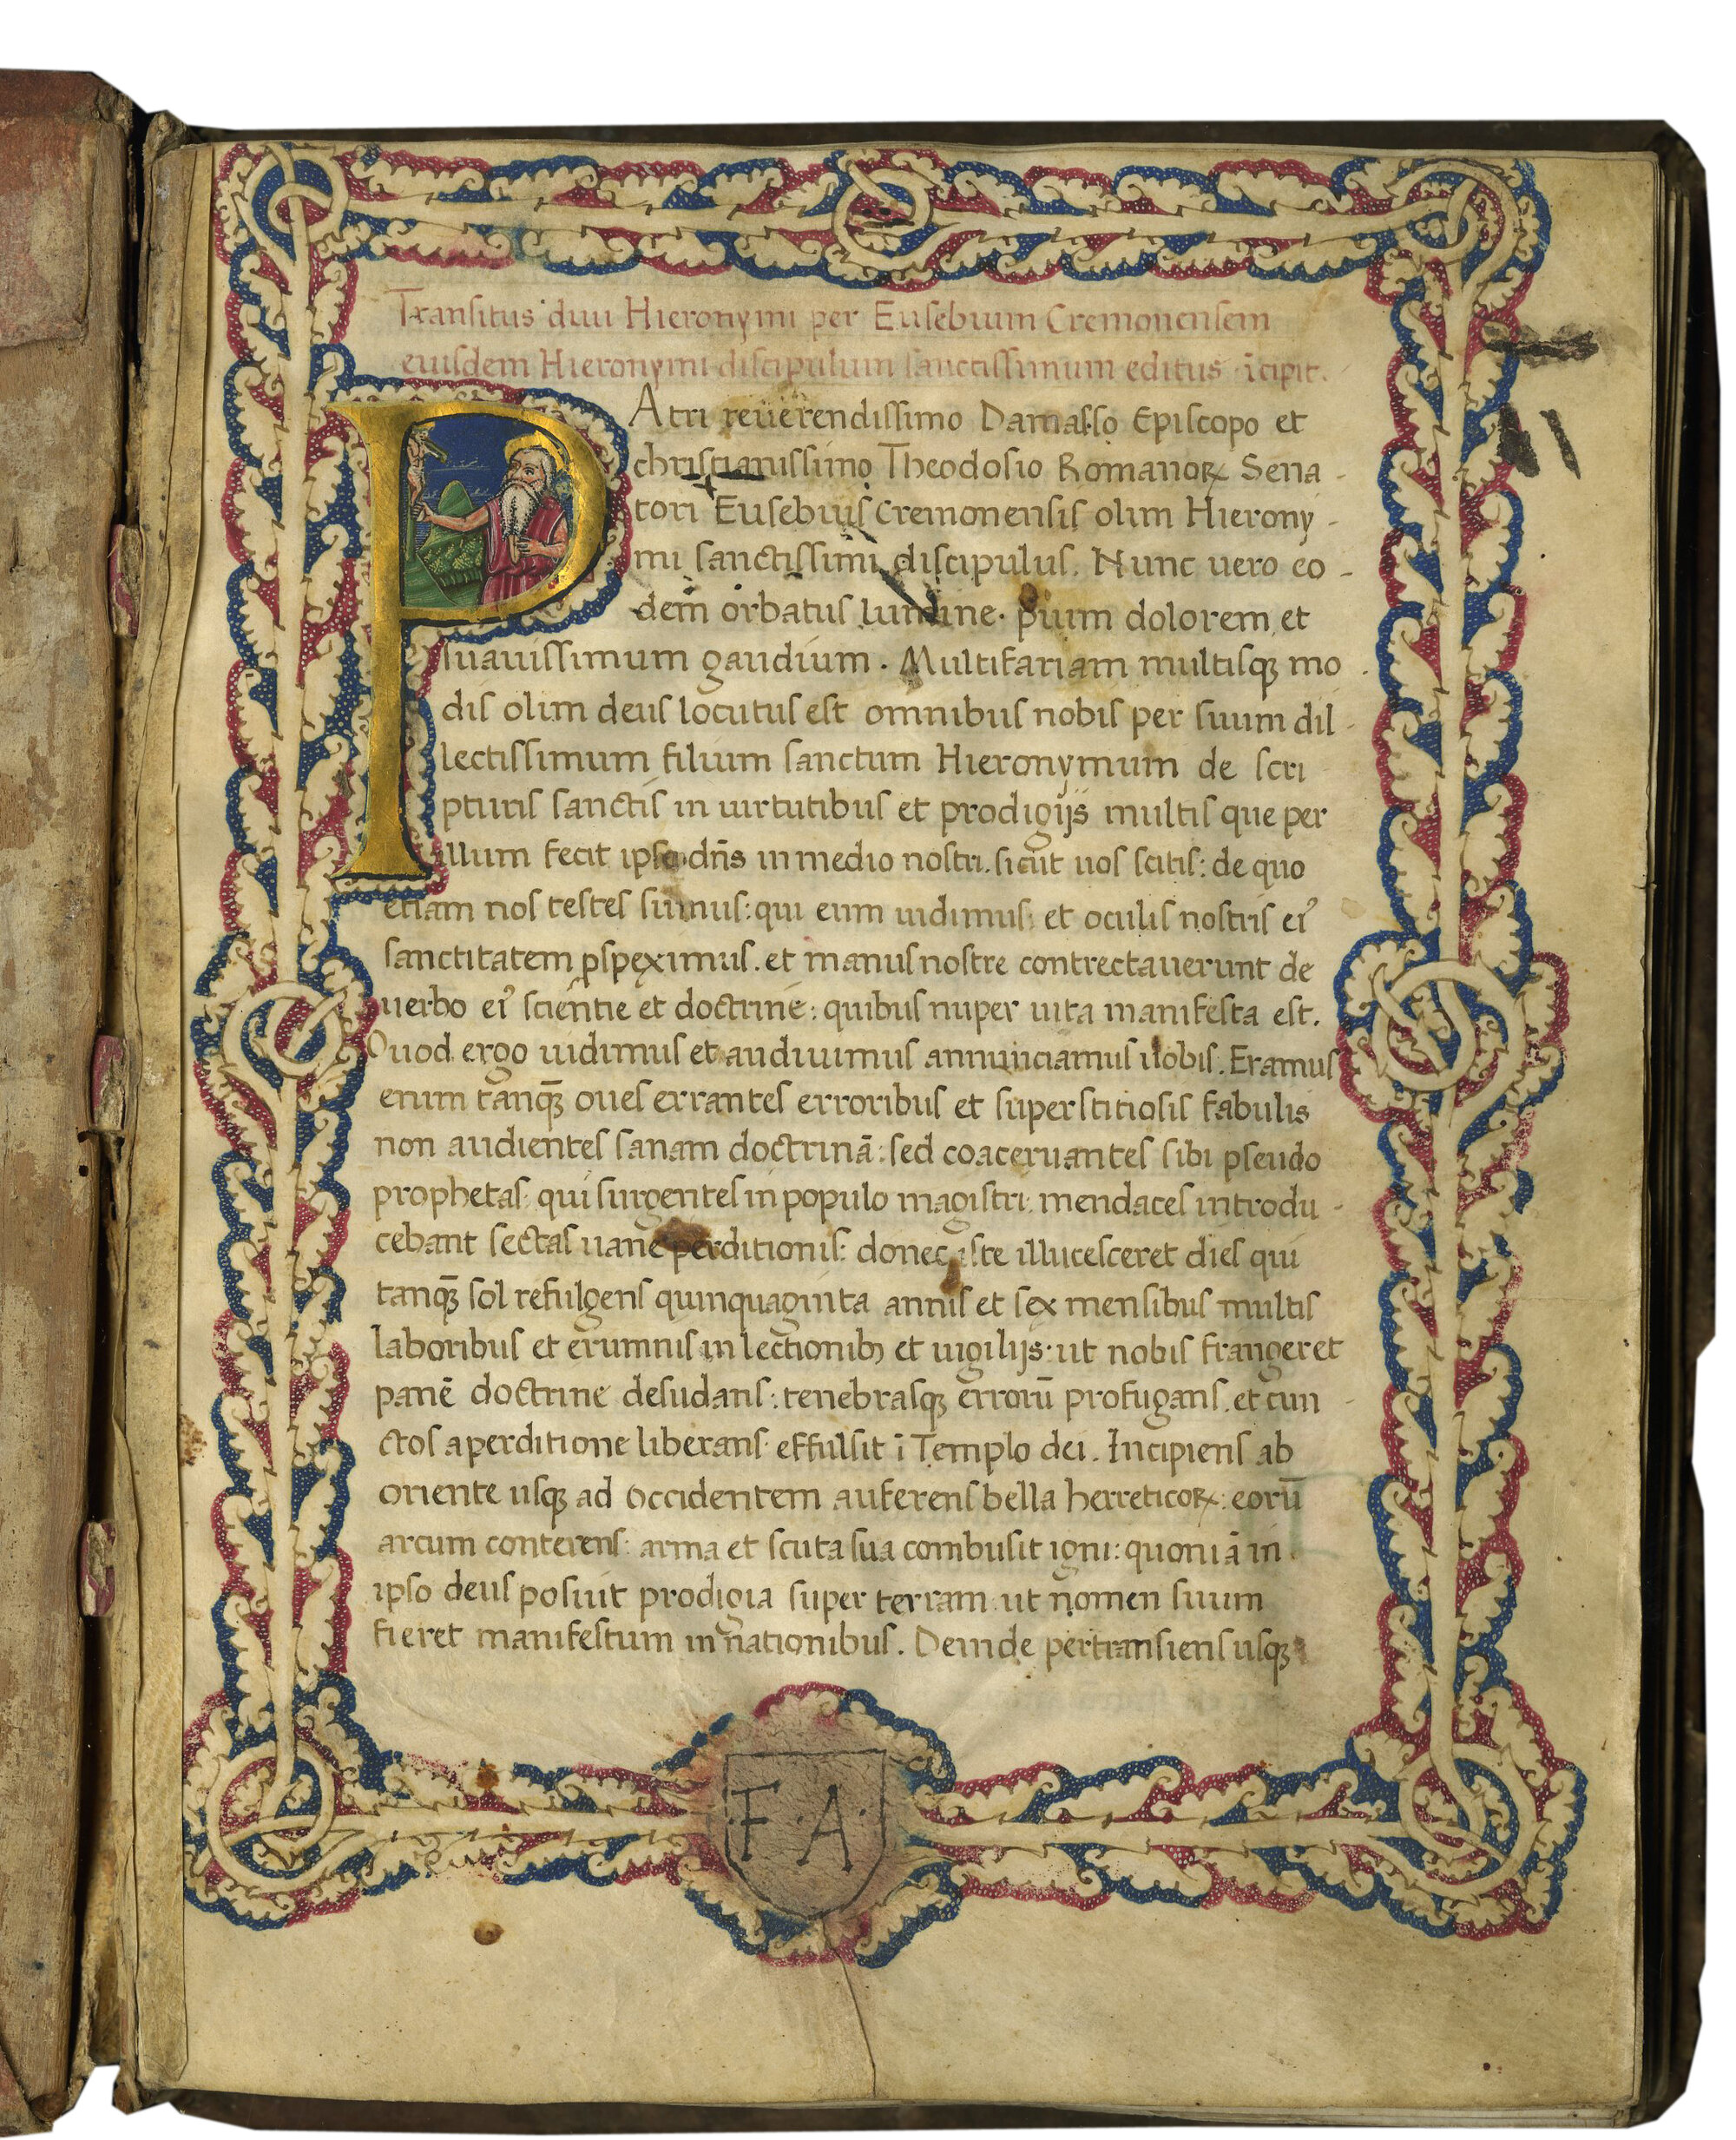 Transitus diui Hieronymi per Eusebium Cremonensem
eiusdem Hieronymi discipulum sanctissimum editus īcipit.
PAtri reuerendissimo Damasso Episcopo et
christianissimo Theodosio Romanoꝝ Sena-
tori Eusebius Cremonensis olim Hierony-
mi sanctissimi discipulus. Nunc uero eo-
dem orbatus lumine. pium dolorem et
suauissimum gaudium. Multifariam multisqꝫ mo-
dis olim deus locutus est omnibus nobis per suum dil-
lectissimum filium sanctum Hieronymum de scri
pturis sanctis in uirtutibus et prodigijs multis que per
illum fecit ipse dn̄s in medio nostri. sicut uos scitis: de quo
etiam nos testes sumus: qui eum uidimus: et oculis nostris eiꝰ
sanctitatem ꝑspęximus. et manus nostre contrectauerunt de
uerbo eiꝰ scientie et doctrine: quibus nuper uita manifesta est.
Quod ergo uidimus et audiuimus annunciamus uobis. Eramus
enim tanqꝫ̄ oues errantes erroribus et superstitiosis fabulis
non audientes sanam doctrinā: sed coaceruantes sibi pseudo
prophetas: qui surgentes in populo magistri mendaces introdu-
cebant sectas uane perditionis: donec iste illucesceret dies qui
tanqꝫ̄ sol refulgens quinquaginta annis et sex mensibus multis
laboribus et erumnis in lectionibꝫ et uigilijs: ut nobis frangeret
panē doctrine desudans: tenebrasqꝫ errorū profugans. et cun-
ctos a perditione liberans effulsit ī Templo dei. Incipiens ab
oriente usqꝫ ad occidentem auferens bella herreticoꝝ: eorū
arcum conterens: arma et scuta sua combusit igni: quoniā in
ipso deus posuit prodigia super terram ut nomen suum
fieret manifestum in nationibus. Deinde pertransiens usqꝫ
·F·A·